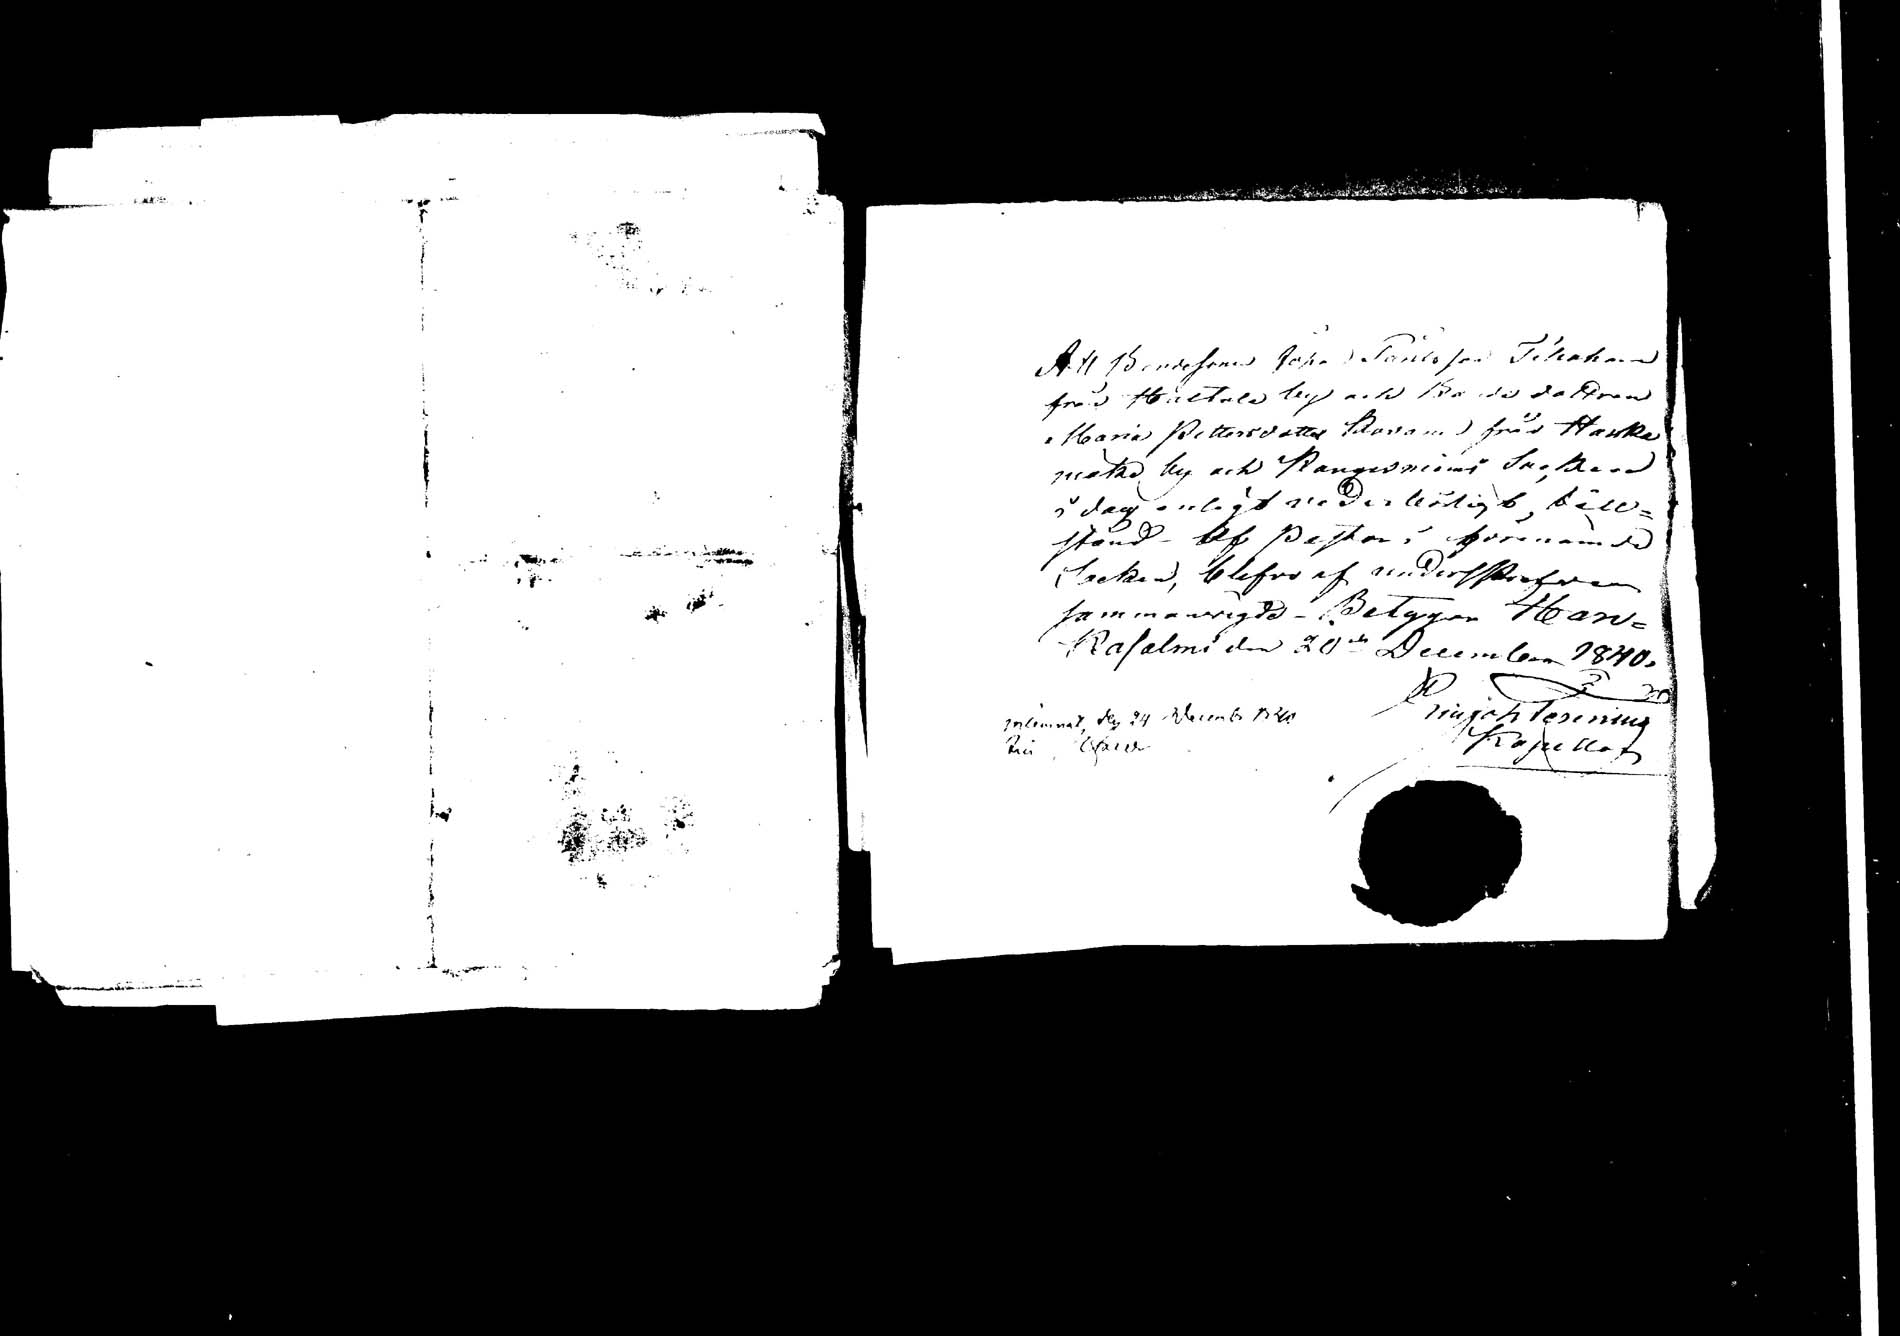 Att Bondesonen Johan Påulsson Tikkanen
från Hultala by och Bonde dottren
Maria Pettersdotter Kovanen från Hanka
mäki by och Kangasniemi Socken
i dag enligt vederbörligt, till=
stånd af Pastor i förenämnde
Socken, blefvo af undertecknad
sammanvigde - Betygar Han=
kasalmi den 20de December 1840.
Kapellan
inlemnat, den 24 December 1840